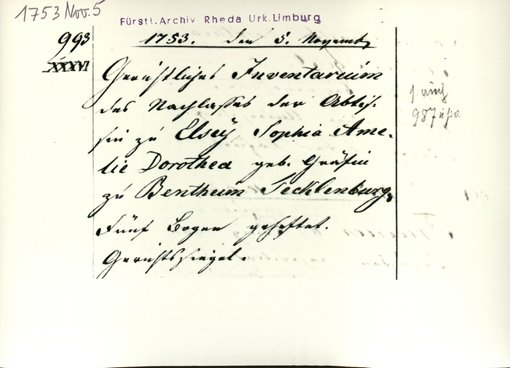 1753 Nov. 5
Fürstl. Archiv Rheda Urk. Limburg
993
XXXVI
1753. den 5. Novemb.
Gerichtliches Inventarium
des Nachlasses der Äbtis-
sin zu Elsey Sophia Ame-
lie Dorothea geb. Gräfin
zu Bentheim Tecklenburg,
Fünf Bogen geheftet.
Gerichtssiegel.